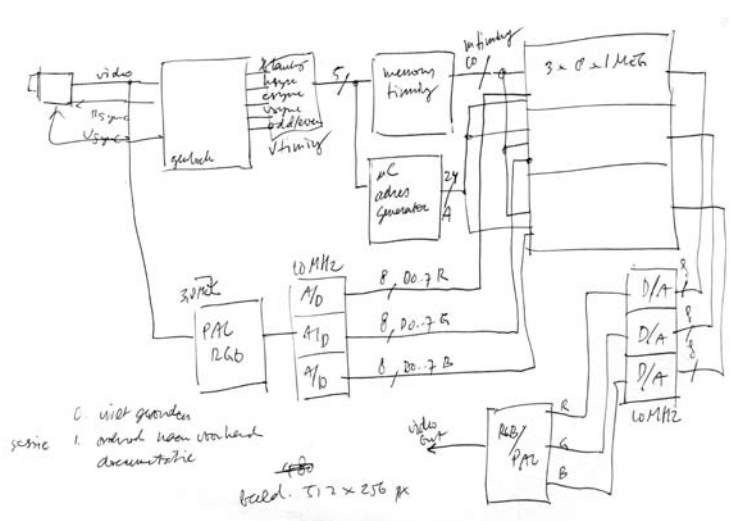 video
Hsync
Vsync
genlock
hsync
csync
vsync
odd/even
Vtiming
5
memory
timing
mtiming
10
3 x 8 x 1 MEG
µC
adres
generator
24
A
10 MHz
PAL
RGB
A/D
A/D
A/D
8, D0..7 R
8, D0..7 G
8, D0..7 B
D/A
D/A
D/A
8
8
8
10 MHz
R
G
B
RGB/
PAL
video
out
0. niet gevonden
1.
documentatie
480
beeld. 512 x 256 px